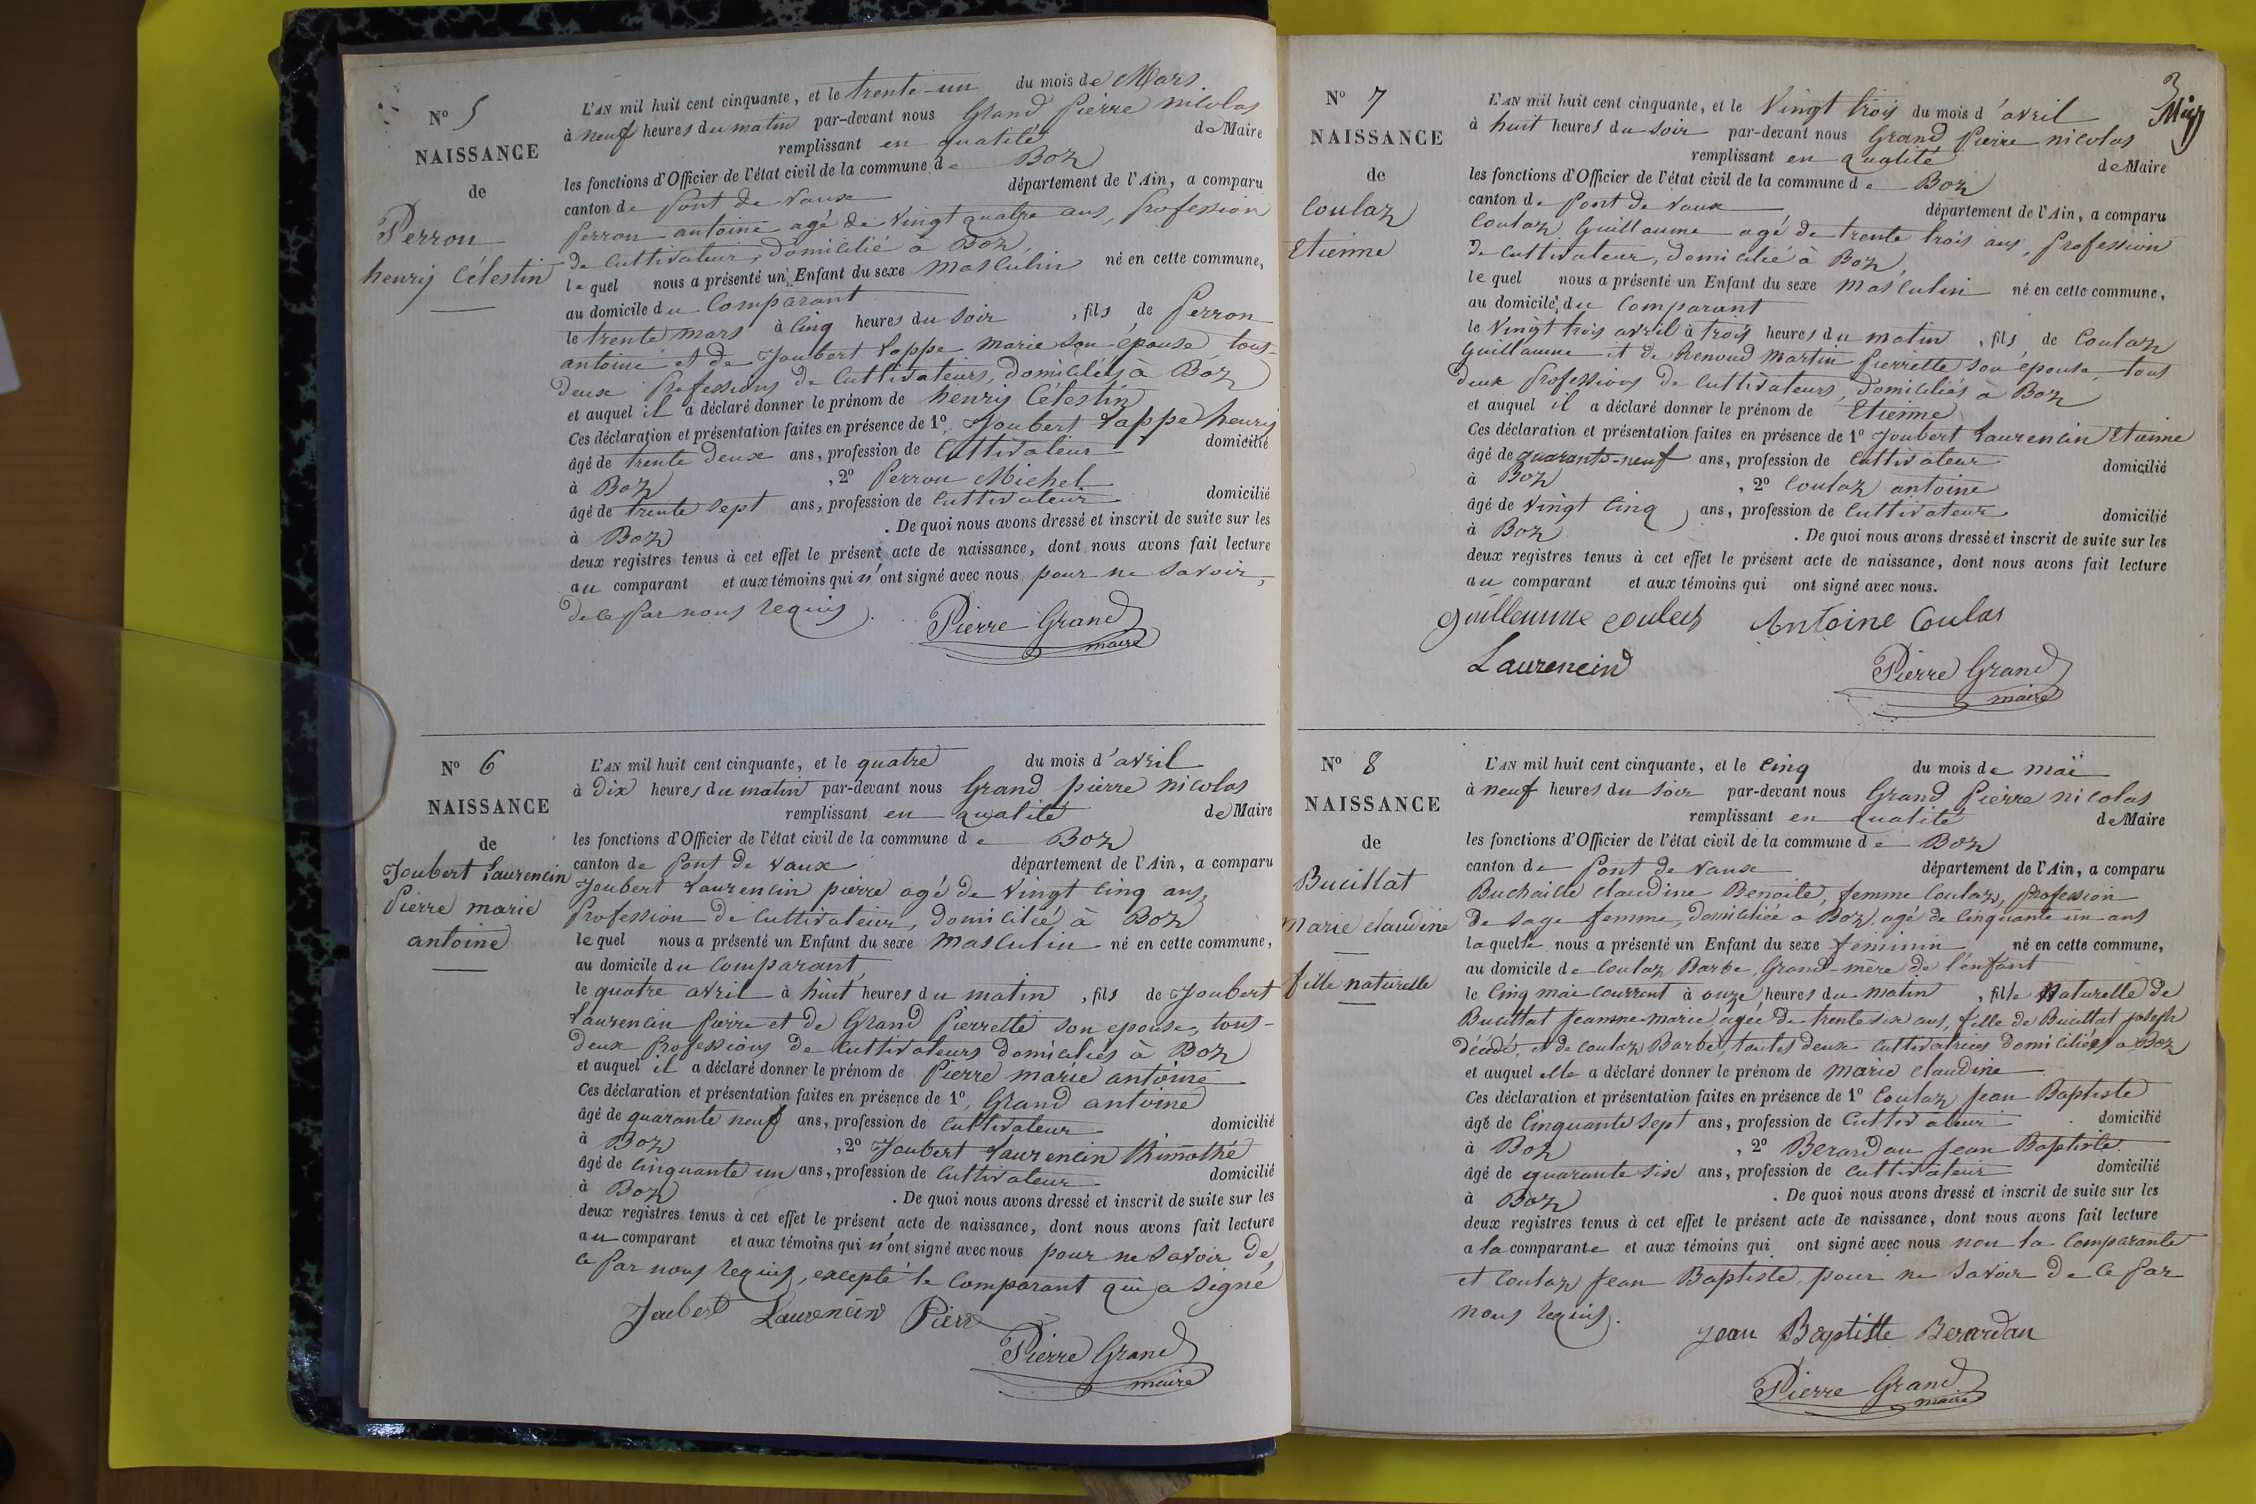 N° 5
NAISSANCE
de
Perron
henry Célestin
L'AN mil huit cent cinquante, et le trente-un du mois de Mars.
à neuf heures du matin par-devant nous Grand Pierre nicolas
remplissant en qualité de Maire
les fonctions d'Officier de l'état civil de la commune de Boz
canton de Pont de Vaux département de l'Ain, a comparu
Perron antoine agé de vingt quatre ans, profession
de Cultivateur, domicilié à Boz,
lequel nous a présenté un Enfant du sexe masculin né en cette commune,
au domicile du Comparant
le trente mars à cinq heures du soir, fils de Perron
antoine et de Joubert Vappe marie son épouse, tous-
deux professions de Cultivateurs, domiciliés à Boz
et auquel il a déclaré donner le prénom de henry Célestin
Ces déclaration et présentation faites en présence de 1° Joubert Vappe henry
âgé de trente deux ans, profession de Cultivateur domicilié
à Boz, 2° Perron Michel
âgé de trente sept ans, profession de Cultivateur domicilié
à Boz. De quoi nous avons dressé et inscrit de suite sur les
deux registres tenus à cet effet le présent acte de naissance, dont nous avons fait lecture
au comparant et aux témoins qui n'ont signé avec nous pour ne savoir,
de ce par nous requis.
Pierre Grand
maire
N° 6
NAISSANCE
de
Joubert Laurencin
Pierre marie
antoine
L'AN mil huit cent cinquante, et le quatre du mois d'avril
à dix heures du matin par-devant nous Grand pierre nicolas
remplissant en qualité de Maire
les fonctions d'Officier de l'état civil de la commune de Boz
canton de Pont de Vaux département de l'Ain, a comparu
Joubert Laurencin pierre agé de vingt cinq ans,
Profession de Cultivateur, domicilié à Boz
lequel nous a présenté un Enfant du sexe masculin né en cette commune,
au domicile du Comparant,
le quatre avril à huit heures du matin, fils de Joubert
Laurencin Pierre et de Grand Pierrette son epouse, tous-
deux professions de Cultivateurs domiciliés à Boz
et auquel il a déclaré donner le prénom de Pierre marie antoine
Ces déclaration et présentation faites en présence de 1° Grand antoine
âgé de quarante neuf ans, profession de Cultivateur domicilié
à Boz, 2° Joubert Laurencin thimothé
âgé de Cinquante un ans, profession de Cultivateur domicilié
à Boz. De quoi nous avons dressé et inscrit de suite sur les
deux registres tenus à cet effet le présent acte de naissance, dont nous avons fait lecture
au comparant et aux témoins qui n'ont signé avec nous pour ne savoir de,
ce par nous requis, excepté le Comparant qui a signé
Joubert Laurencin Pierre
Pierre Grand
maire
3
N° 7
NAISSANCE
de
Coulaz
Etienne
L'AN mil huit cent cinquante, et le Vingt trois du mois d'avril
à huit heures du soir par-devant nous Grand Pierre nicolas
remplissant en qualité de Maire
les fonctions d'Officier de l'état civil de la commune de Boz
canton de Pont de Vaux département de l'Ain, a comparu
Coulaz Guillaume agé de trente trois ans, Profession
de Cultivateur, domicilié à Boz,
lequel nous a présenté un Enfant du sexe masculin né en cette commune,
au domicile du Comparant
le Vingt trois avril à trois heures du matin, fils de Coulaz
Guillaume et de Renoud Martin Pierrette son épouse, tous
deux professions de Cultivateurs, domiciliés à Boz
et auquel il a déclaré donner le prénom de Etienne
Ces déclaration et présentation faites en présence de 1° Joubert Laurencin Etienne
âgé de quarante-neuf ans, profession de Cultivateur domicilié
à Boz, 2° Coulaz antoine
âgé de vingt cinq ans, profession de Cultivateur domicilié
à Boz. De quoi nous avons dressé et inscrit de suite sur les
deux registres tenus à cet effet le présent acte de naissance, dont nous avons fait lecture
au comparant et aux témoins qui ont signé avec nous.
guillaume coulas Antoine Coulas
Laurencin
Pierre Grand
maire
N° 8
NAISSANCE
de
Bucillat
marie claudine
fille naturelle
L'AN mil huit cent cinquante, et le cinq du mois de mai
à neuf heures du soir par-devant nous Grand Pierre nicolas
remplissant en qualité de Maire
les fonctions d'Officier de l'état civil de la commune de Boz
canton de Pont de Vaux département de l'Ain, a comparu
Buchaille claudine Benoite, femme Coulaz, profession
de sage femme, domiciliée a Boz agé de Cinquante un ans
laquelle nous a présenté un Enfant du sexe féminin né en cette commune,
au domicile de Coulaz Barbe, Grand-mère de l'enfant
le Cinq mai courrant à onze heures du matin, fille Naturelle de
Bucillat Jeanne-marie, agée de trente six ans, fille de Bucillat Joseph
décédé, et de Coulaz Barbe, toutes deux Cultivatrices domiciliées a Boz
et auquel elle a déclaré donner le prénom de marie claudine
Ces déclaration et présentation faites en présence de 1° Coulaz Jean Baptiste
âgé de Cinquante sept ans, profession de Cultivateur domicilié
à Boz, 2° Berardan Jean Baptiste
âgé de quarante six ans, profession de Cultivateur domicilié
à Boz. De quoi nous avons dressé et inscrit de suite sur les
deux registres tenus à cet effet le présent acte de naissance, dont nous avons fait lecture
a la comparante et aux témoins qui ont signé avec nous non la Comparante
et Coulaz Jean Baptiste, pour ne savoir de ce par
nous requis.
Jean Baptiste Berardan
Pierre Grand
maire